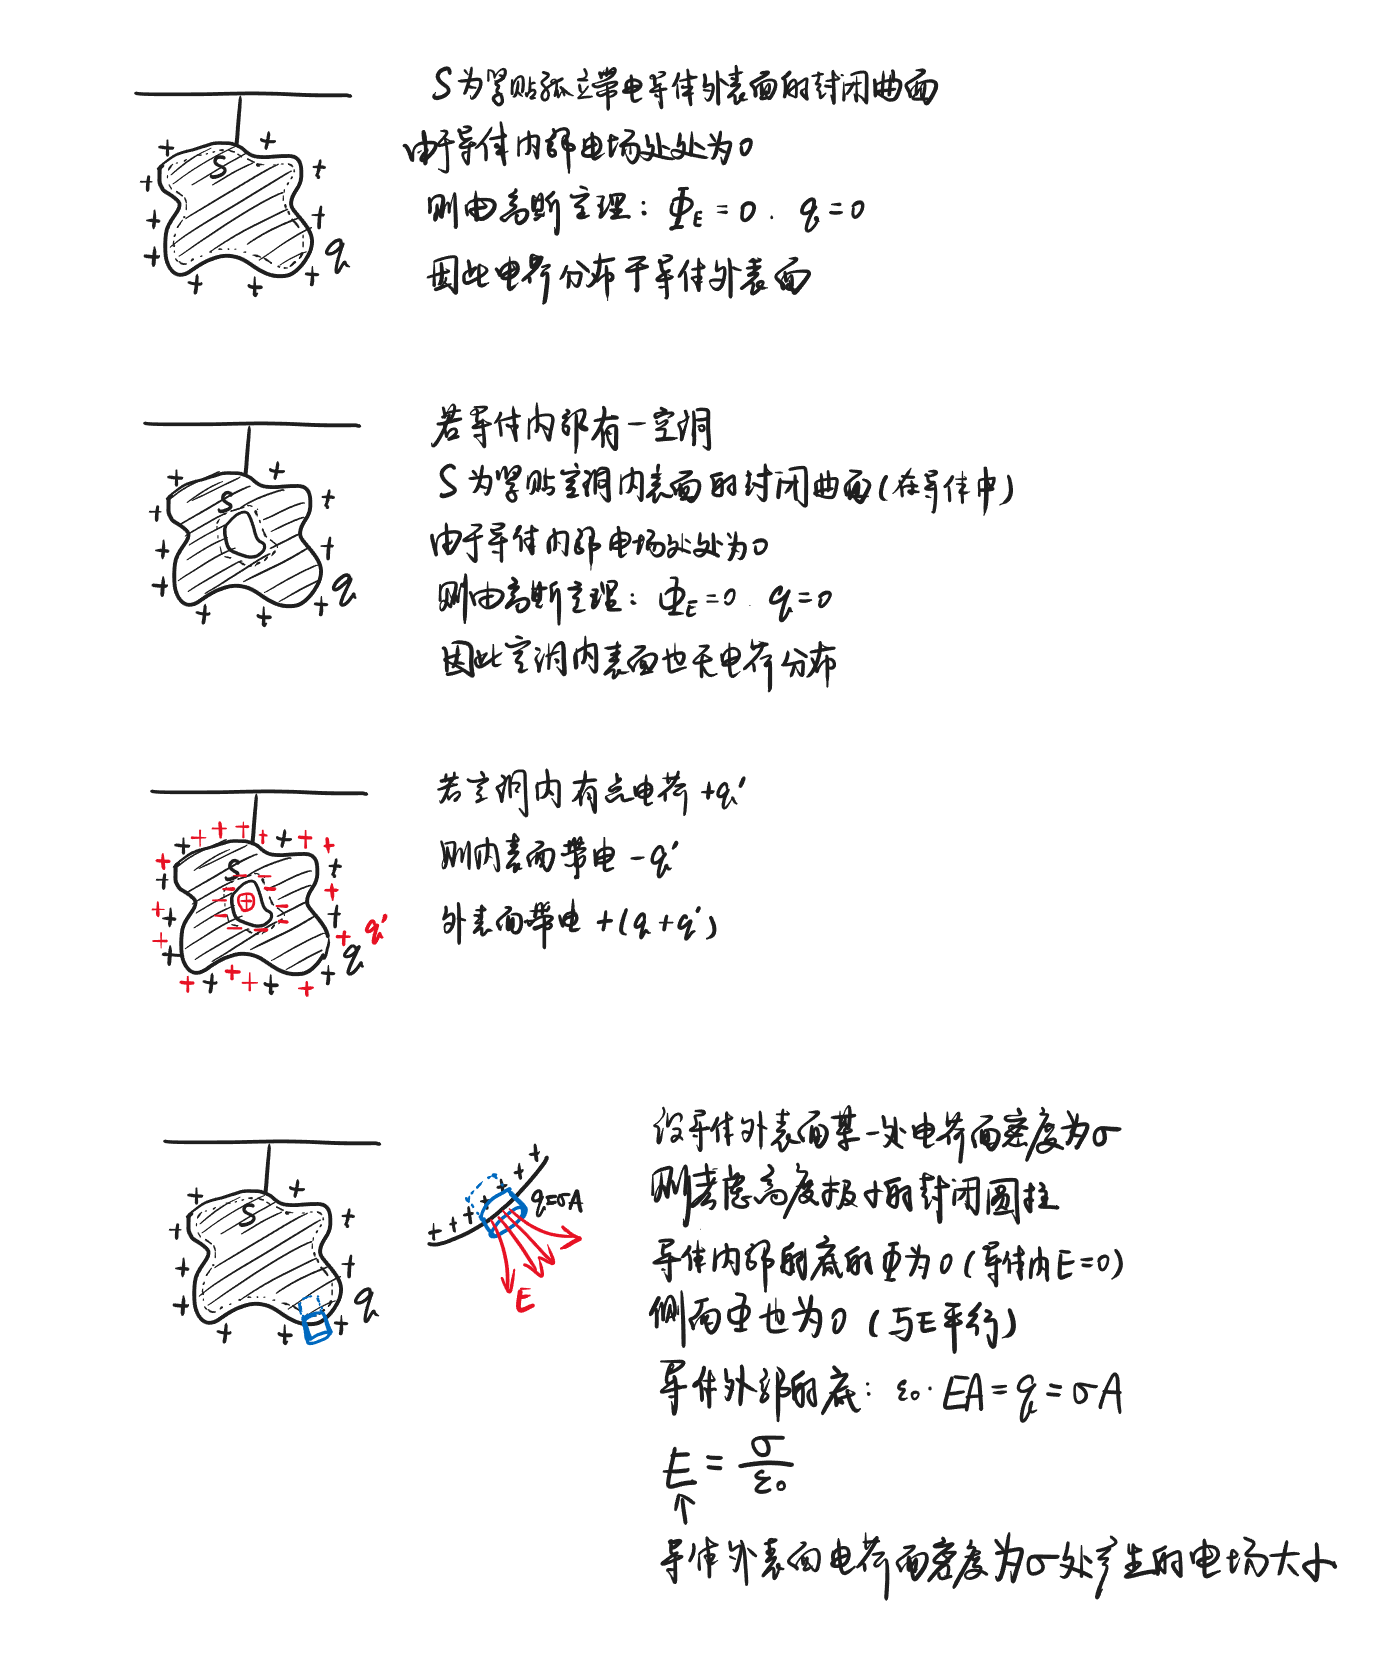 S为紧贴孤立带电导体外表面的封闭曲面
由于导体内部电场处处为0
则由高斯定理：Φ_E = 0. q = 0
因此电荷分布于导体外表面
S
q
若导体内部有一空洞
S为紧贴空洞内表面的封闭曲面(在导体中)
由于导体内部电场处处为0
则由高斯定理：Φ_E = 0. q = 0
因此空洞内表面也无电荷分布
S
q
若空洞内有点电荷+q'
则内表面带电-q'
外表面带电+(q+q')
S
q
q'
设导体外表面某一处电荷面密度为σ
则考虑高度极小的封闭圆柱
导体内部的底的Φ为0(导体内E=0)
侧面Φ也为0(与E平行)
导体外部的底：ε₀·EA = q = σA
E = σ/ε₀
↑
导体外表面电荷面密度为σ处产生的电场大小
S
q
q=σA
E